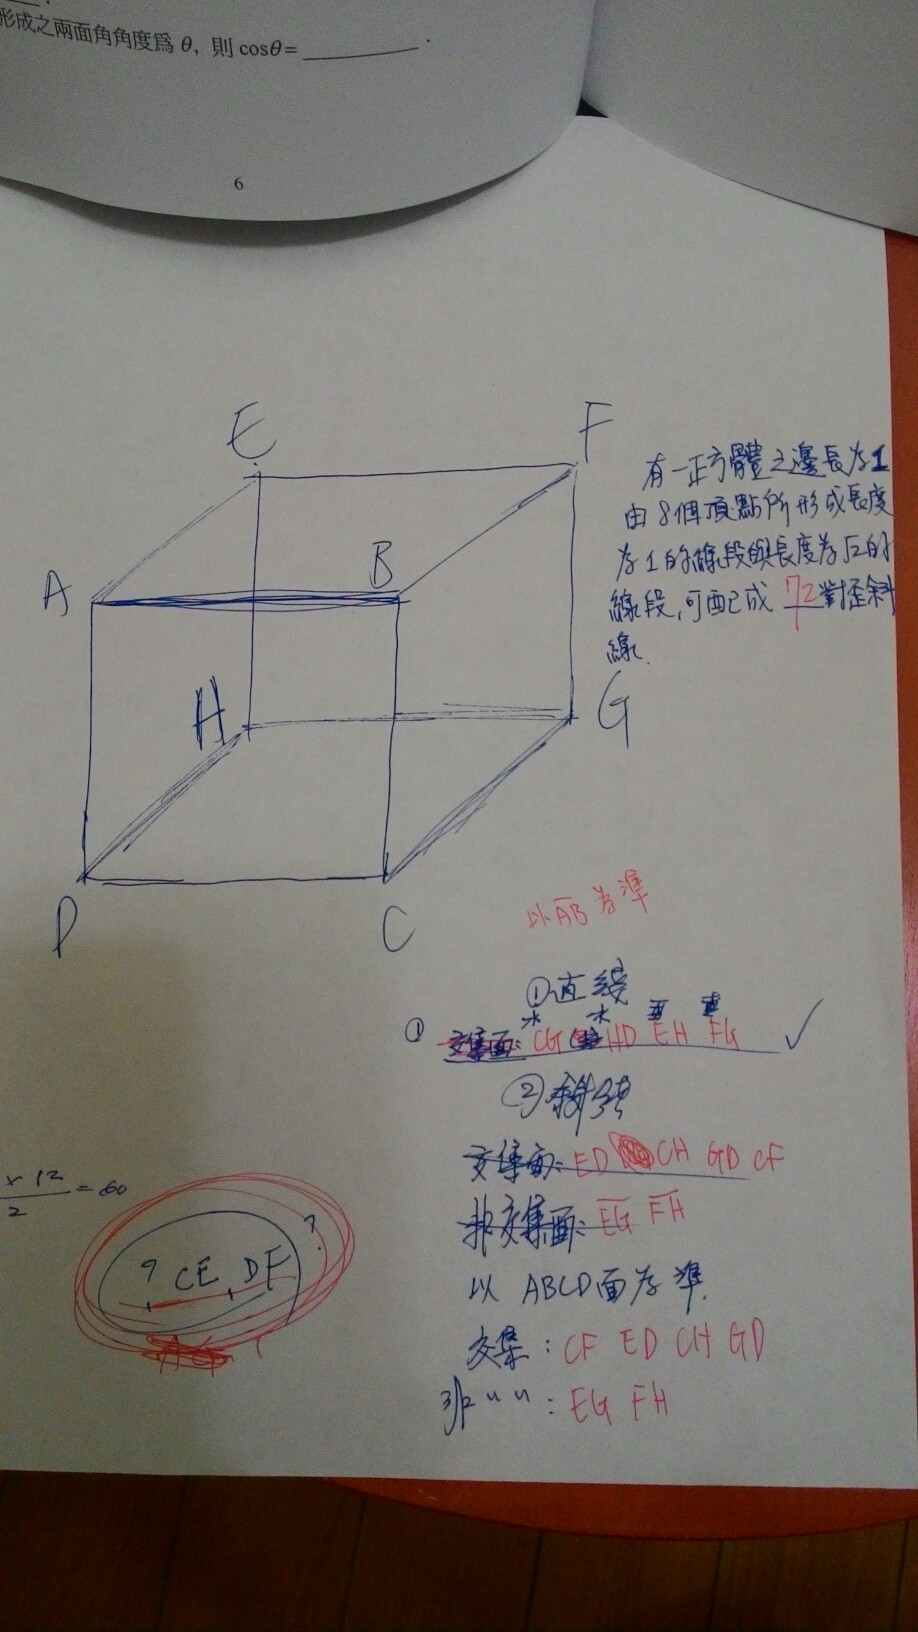 形成之兩面角角度爲 θ，則 cosθ= ________ .
6
E
F
A
B
H
G
D
C
有一正方體之邊長為1
由8個頂點所形成長度
為1的線段與長度為√2的
線段,可配成 72 對歪斜
線.
以 AB 為準
①直線
① 交集面: CG HD EH FG ✓
②斜線
交集面: ED CH GD CF
非交集面: EG FH
以 ABCD面為準.
交集: CF ED CH GD
非〃〃: EG FH
x 12
2
= 60
? CE DF ?